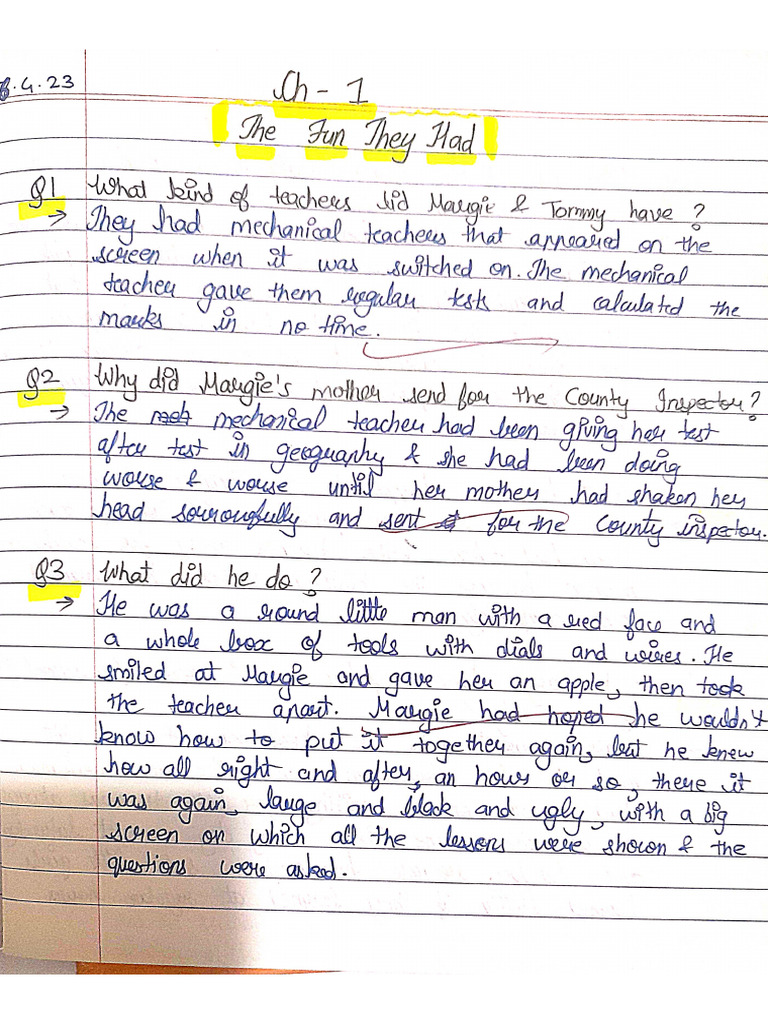 .4.23
Ch - 1
The Fun They Had
Q1 What kind of teachers did Margie & Tommy have ?
→ They had mechanical teachers that appeared on the
screen when it was switched on. The mechanical
teacher gave them regular tests and calculated the
marks in no time.
Q2 Why did Margie's mother send for the County Inspector?
→ The mechanical teacher had been giving her test
after test in geography & she had been doing
worse & worse until her mother had shaken her
head sorrowfully and sent for the County inspector.
Q3 What did he do ?
→ He was a round little man with a red face and
a whole box of tools with dials and wires. He
smiled at Margie and gave her an apple, then took
the teacher apart. Margie had hoped he wouldn't
know how to put it together again, but he knew
how all right and after, an hours or so, there it
was again, large and black and ugly, with a big
screen on which all the lessons were shown & the
questions were asked.